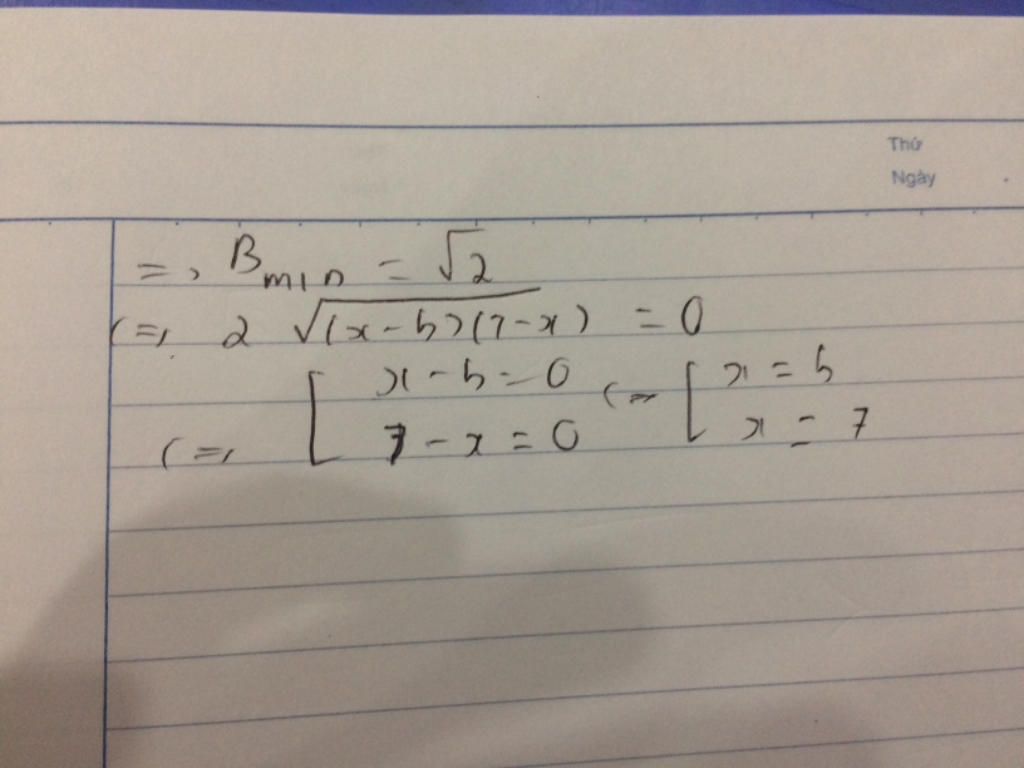 Thứ
Ngày
=> B min = √2
<=> 2 √(x-5)(7-x) = 0
<=> [ x-5=0 <=> [ x=5
7-x=0 x=7